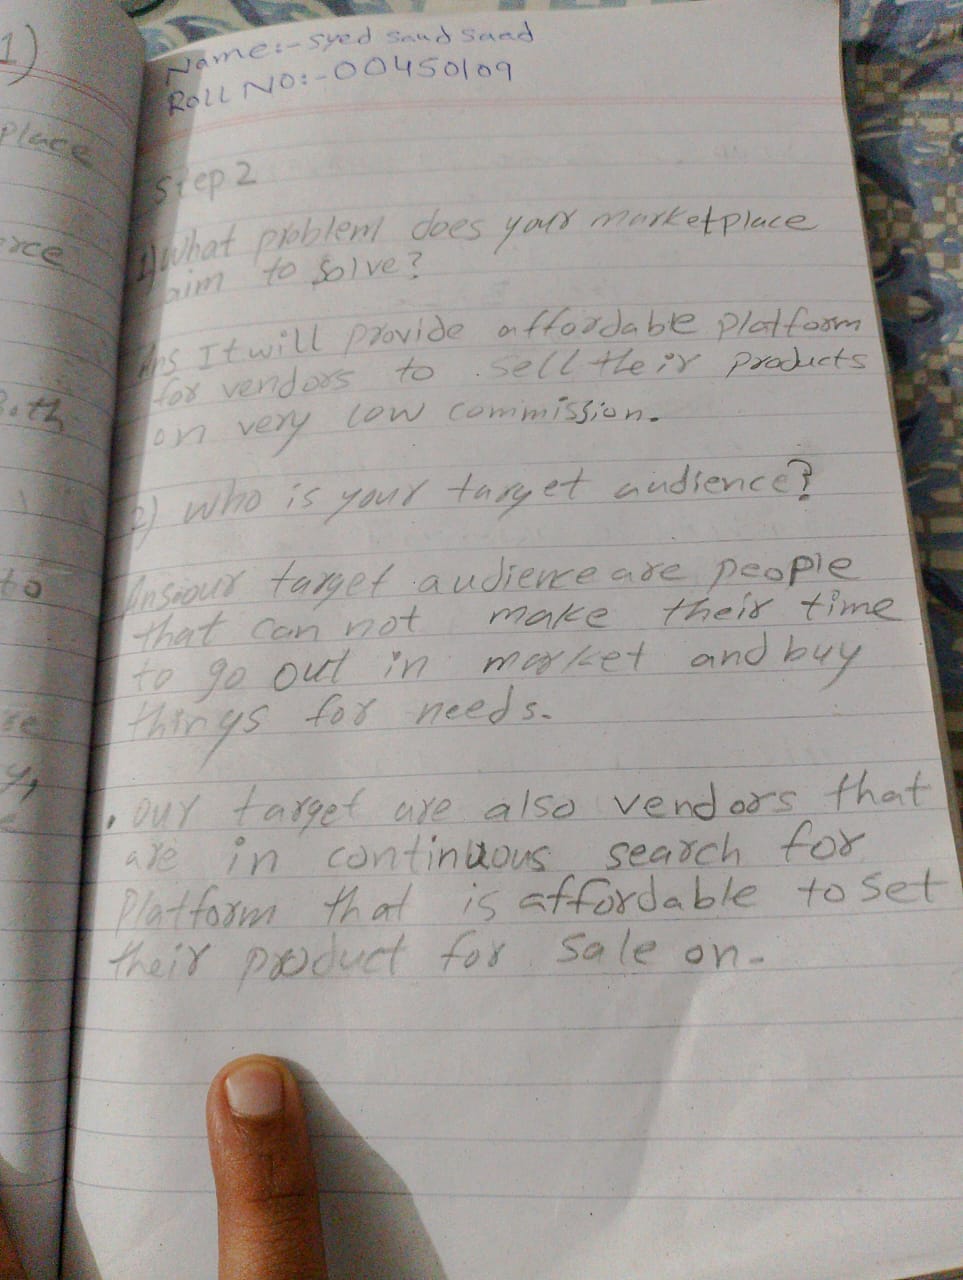 1)
place
rce
Both
to
se
y,
Name:- Syed Saud Saad
Roll NO:-00450109
Step 2
1) What problem does your marketplace
aim to solve?
Ans It will provide affordable platform
for vendors to sell their products
on very low commission.
2) Who is your target audience?
Ans:our target audience are people
that can not make their time
to go out in market and buy
things for needs.
. our target are also vendors that
are in continuous search for
Platform that is affordable to set
their product for sale on.